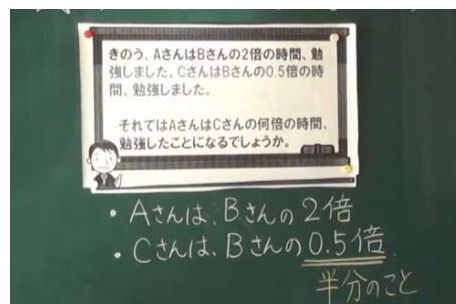 きのう、AさんはBさんの2倍の時間、勉
強しました。CさんはBさんの0.5倍の時
間、勉強しました。
それではAさんはCさんの何倍の時間、
勉強したことになるでしょうか。
・Aさんは、Bさんの2倍
・Cさんは、Bさんの0.5倍
半分のこと